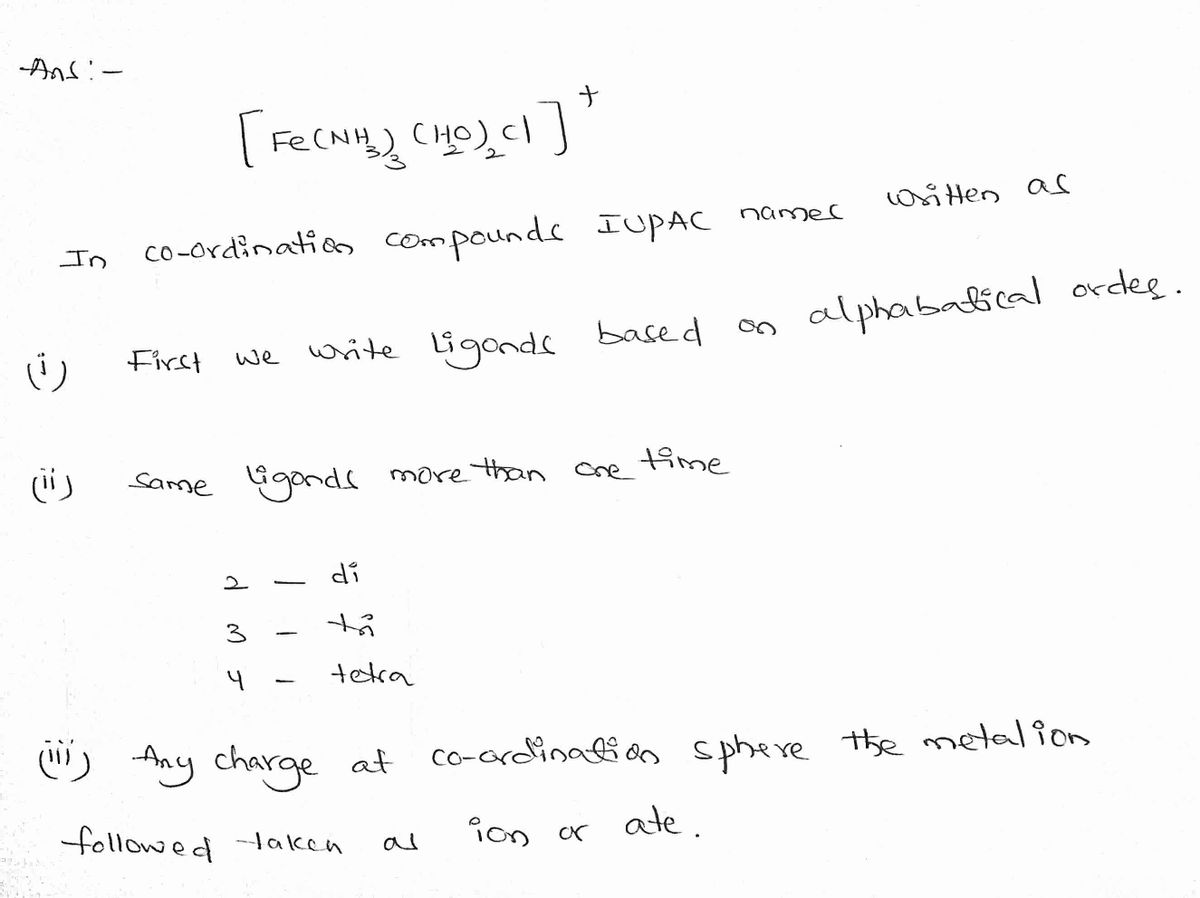 Ans:-
[Fe(NH₃)₃(H₂O)₂Cl]⁺
In co-ordination compounds IUPAC names written as
(i) First we write Ligands based on alphabatical order.
(ii) Same ligands more than one time
2 - di
3 - tri
4 - tetra
(iii) Any charge at co-ordination sphere the metal ion
followed taken as ion or ate.